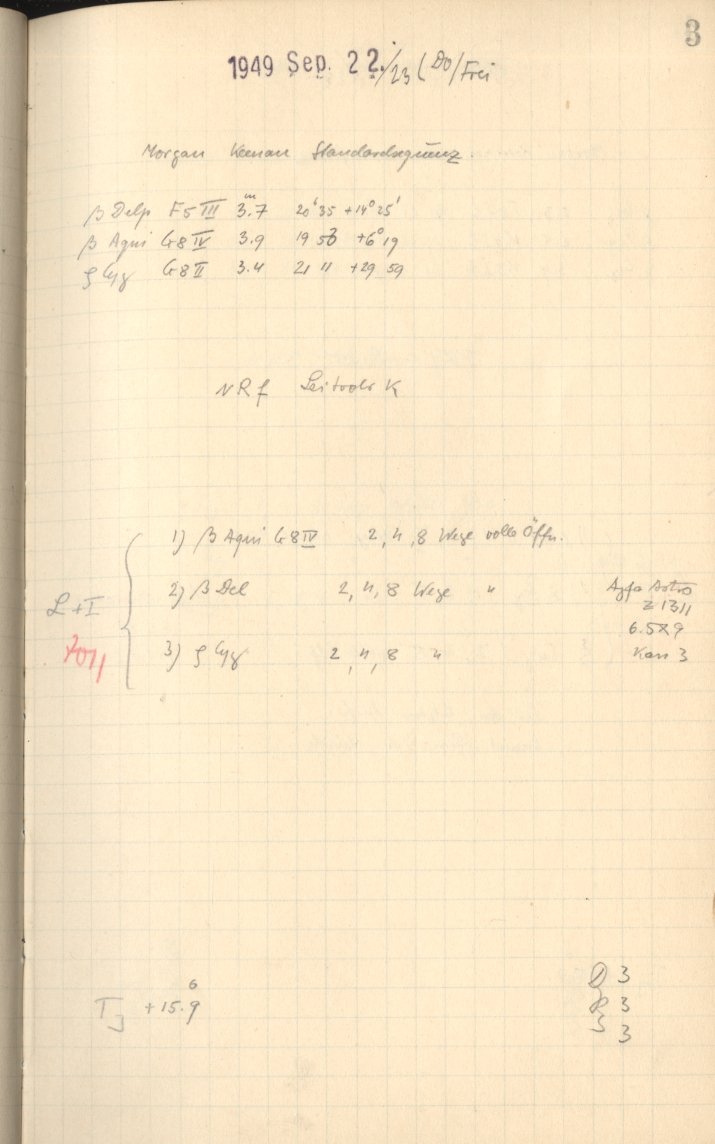 3
1949 Sep. 22./23 (Do/Frei
Morgan Keenan Standardsequenz
β Delp F5 III 3.7ᵐ 20ʰ35 +14°25'
β Aqui G8 IV 3.9 19 53 +6°19
ζ Cyg G8 II 3.4 21 11 +29 59
NRf Leitrohr K
1) β Aqui G8 IV 2, 4, 8 Wege volle Öffn.
2) β Del 2, 4, 8 Wege "
Agfa Astro
Z 1311
6.5x9
Kass 3
L+I
7011
3) ζ Cyg 2, 4, 8 "
T3 +15.9
6
D 3
R 3
3 3